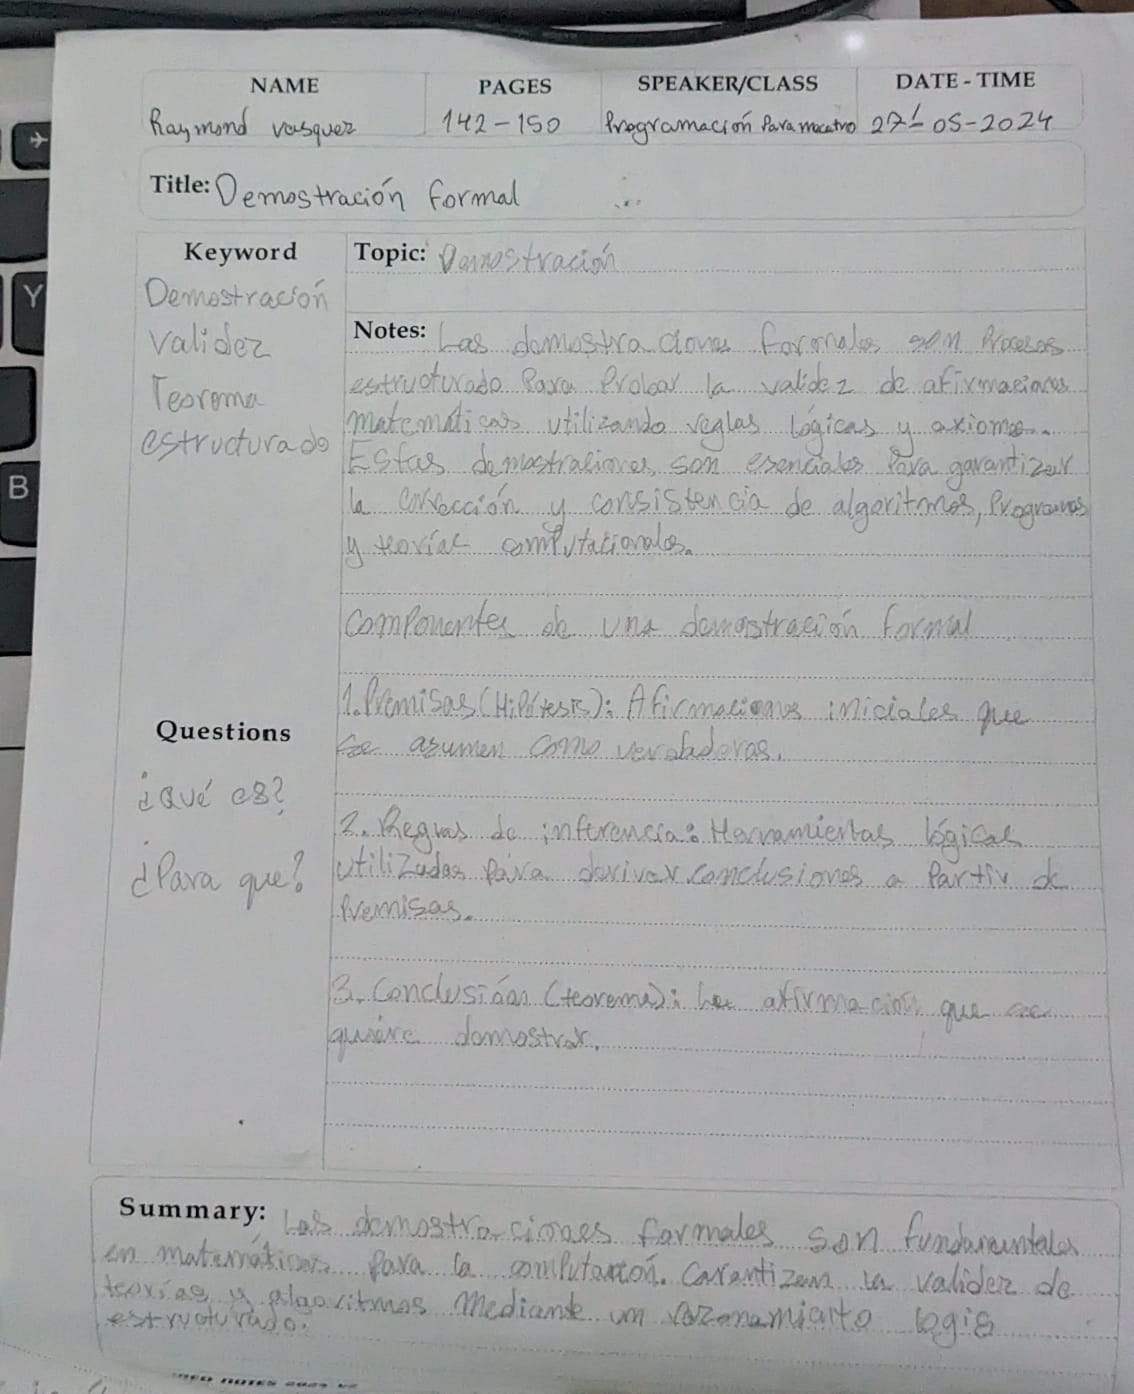 NAME PAGES SPEAKER/CLASS DATE - TIME
Raymond vasquez 142-150 Programación Para mecatro 27-05-2024
Title: Demostración formal
Keyword
Demostración
validez
Teorema
estructurado
Topic: Demostración
Notes: Las demostraciones formales son Procesos
estructurado Para Probar la validez de afirmaciones
matemáticas utilizando reglas lógicas y axiomas.
Estas demostraciones, son esenciales Para garantizar
la corrección y consistencia de algoritmos, Programas
y teorías computacionales.
Componentes de una demostración formal
1. Premisas (Hipótesis): Afirmaciones iniciales que
se asumen como verdaderas.
Questions
¿Qué es?
¿Para que?
2. Reglas de inferencia: Herramientas lógicas
utilizadas Para derivar conclusiones a Partir de
Premisas.
3. Conclusión (teorema): La afirmación que se
quiere demostrar.
Summary: Las demostraciones formales son fundamentales
en matemáticas Para la computación. Garantizan la validez de
teorías y algoritmos mediante un razonamiento logis
estructurado.